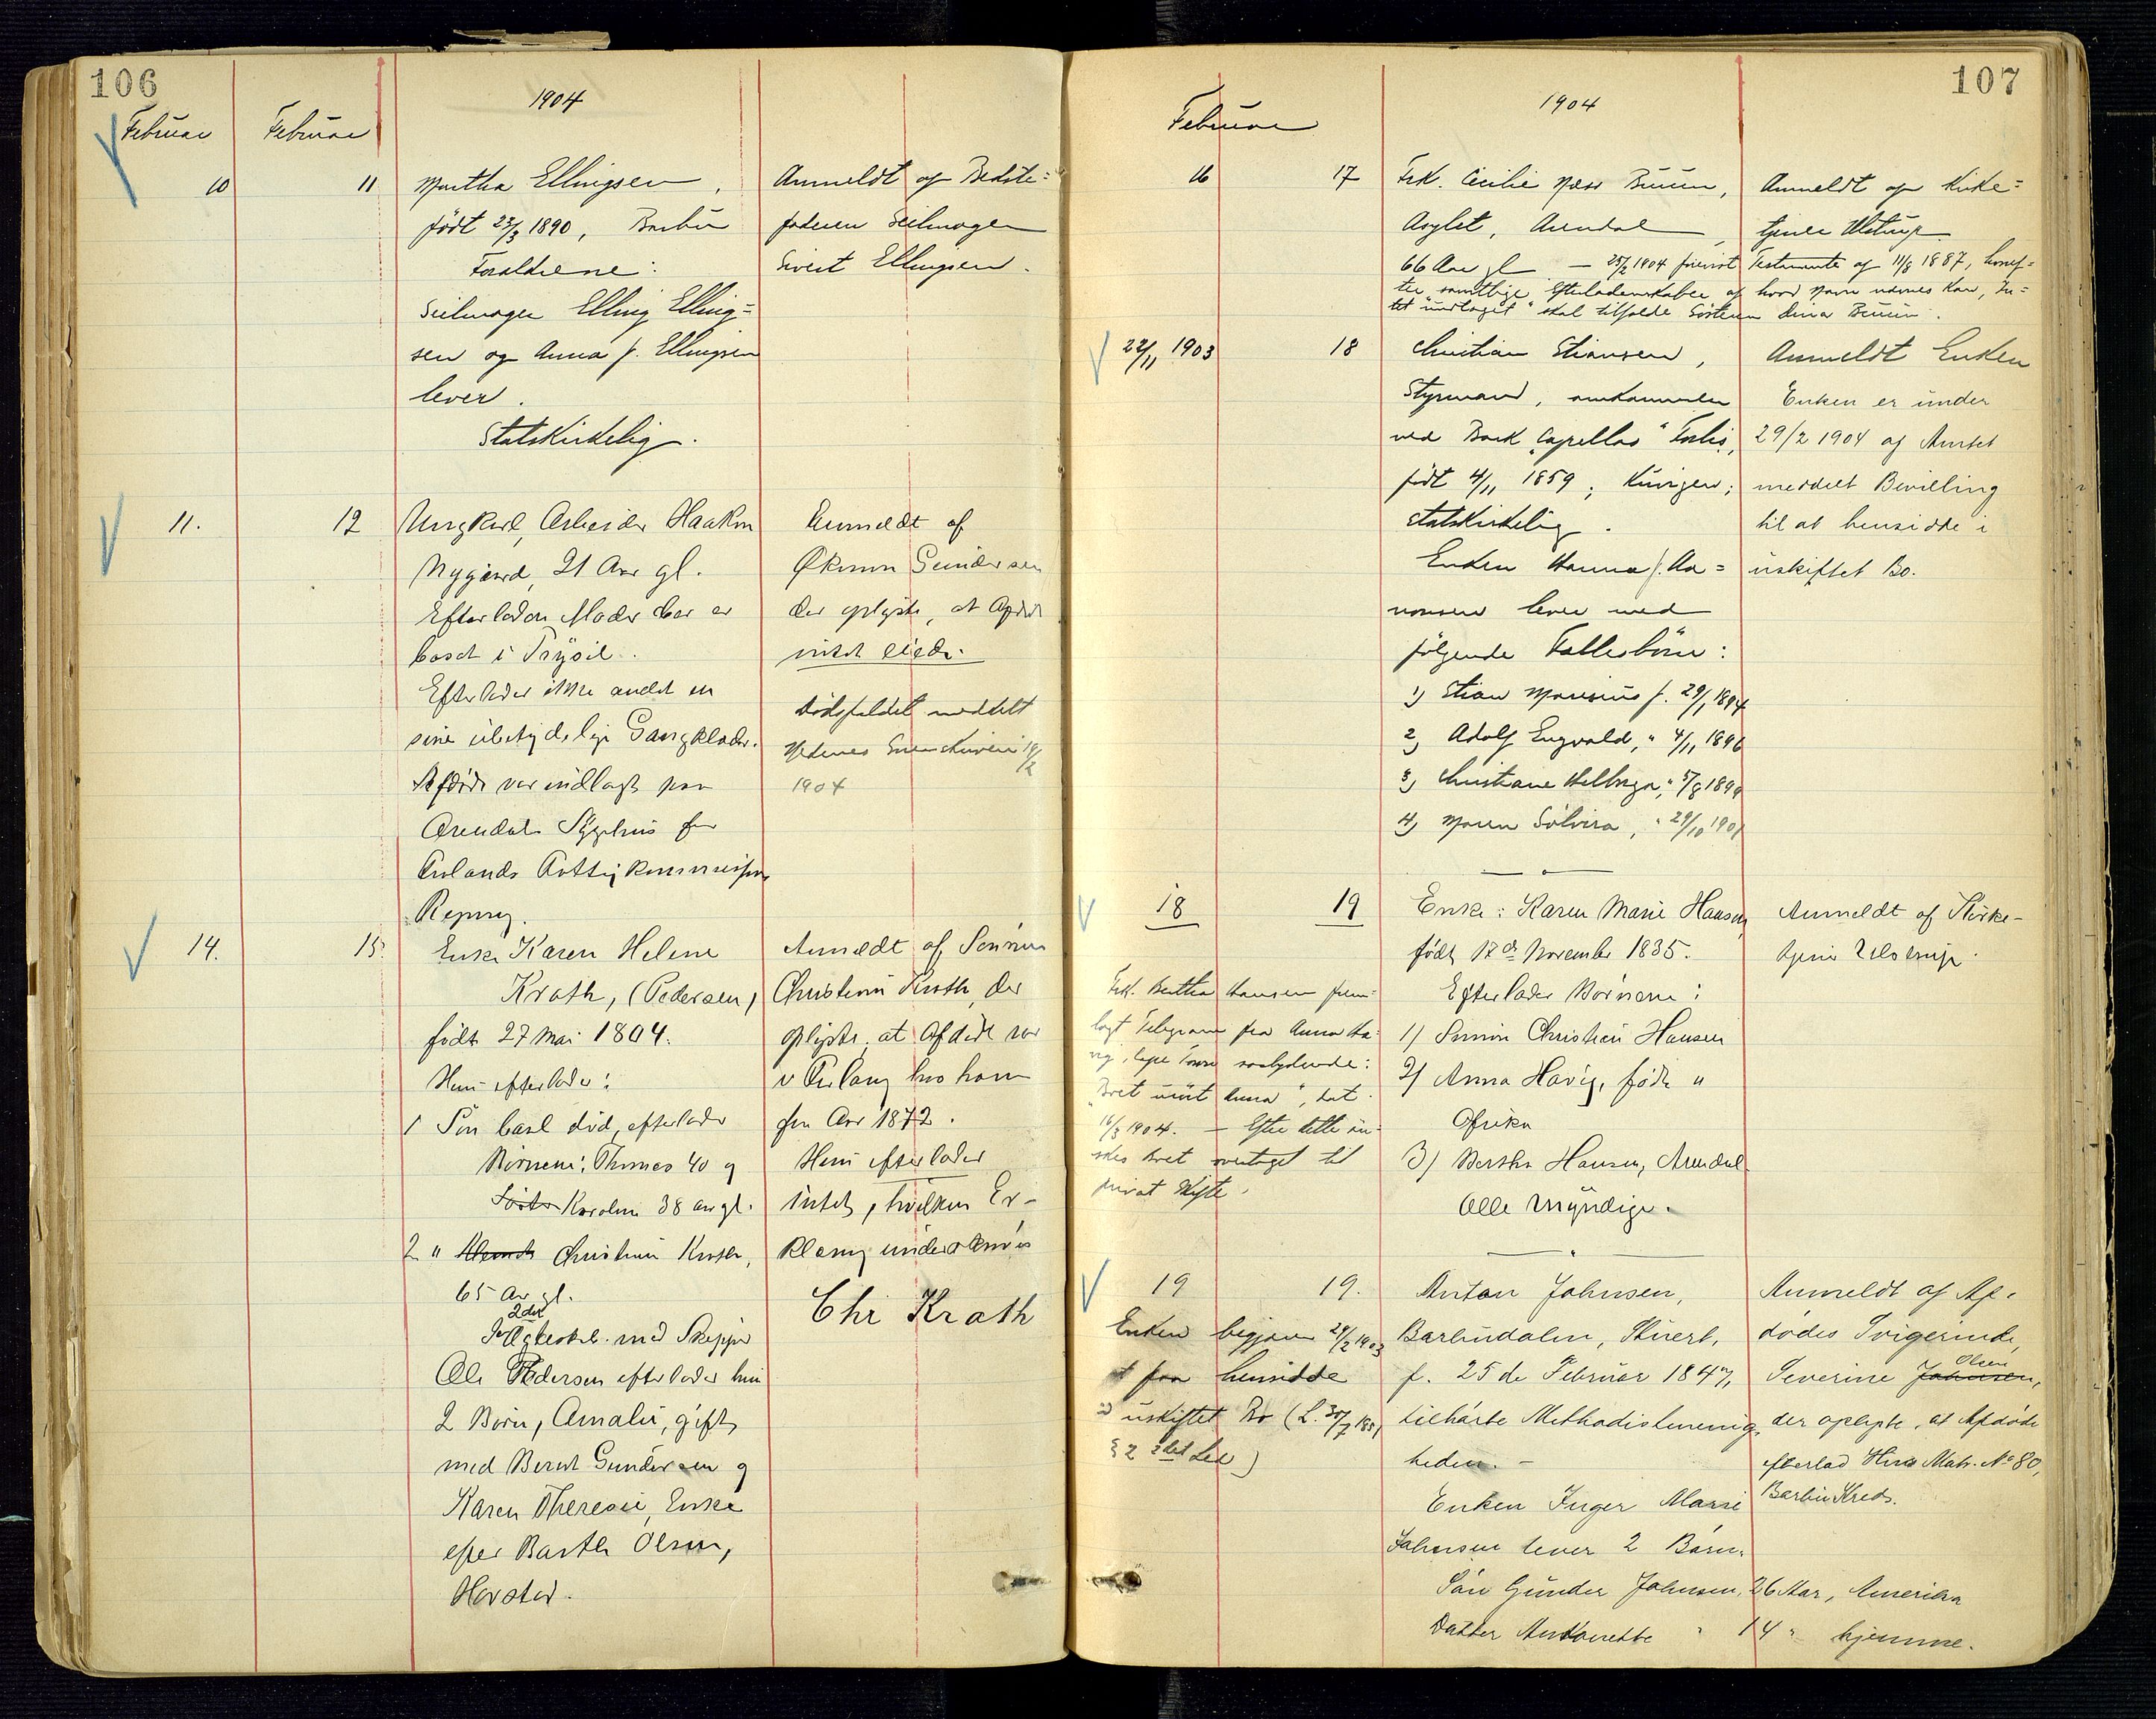 106
1904
Februar
Februar
10
11
Martha Ellingsen,
født 23/3 1890, Barbu
Forældrene:
Seilmager Elling Elling=
sen og Anna f. Ellingsen
lever.
Statskirkelig.
Anmeldt af Bedste=
faderen Seilmager
Sivert Ellingsen.
11.
12
Ungkarl, Arbeider Haakon
Nygaard, 21 Aar gl.
Efterlader Moder der er
bosat i Trysil.
Efterlader ikke andet en
sine ubetydelige Gangklæder.
Afdøde var indlagt paa
Arendals Sygehus for
Fattigkommissions
Regning.
Anmeldt af
Økonom Gundersen
der oplyste, at Afdøde
intet eiede.
Dødsfaldet meddelt
Nedenes Sorenskriveri 19/2
1904
14.
15.
Enke Karen Helene
Krath, (Pedersen)
født 27 Mai 1804.
Hun efterlader:
1 Søn Carl død, efterlader
Børnene: Thomas 40 og
Karoline 38 aar gl.
2 " Christian Krath,
65 Aar gl.
2det
I Ægteskab med Skipper
Ole Pedersen efterlader hun
2 Børn, Amalie, gift
med Bernt Gundersen og
Karen Theresie, Enke
efter Barth Olsen,
Anmeldt af Sønnen
Christian Krath, der
oplyste, at Afdøde var
i Forlang hos ham
fra Aar 1872.
Hun efterlader
intet, hvilken Er-
klæring underskrives
Chr Krath
107
1904
Februar
16
17
Frk. Cecilie Næss Buuen,
Asylet, Arendal
66 Aar gl — 25/2 1904 foreviist Testamente af 11/8 1887, hvoref=
ter samtlige Efterladenskaber af hvad Navn nævnes kan, In=
tet undtaget" skal tilfalde Søsteren Dina Buuen.
Anmeldt af Kirke=
tjener Ulstrup.
22/11 1903
18
Christian Stiansen,
Styrmand, omkommen
ved Bark "Capellas" Forlis,
født 4/11 1859; Kuvigen;
statskirkelig.
Enken Hanna f. Aa=
nonsen lever med
følgende Fællesbørn:
1) Stian Marius f. 29/1 1894
2) Adolf Engvald, " 4/11 1896
3) Christiane Helberga, " 5/8 1899
4) Maren Solvira, " 29/10 1901
Anmeldt Enken
Enken er under
29/2 1904 af Amtet
meddelt Bevilling
til at hensidde i
uskiftet Bo.
18
19
Enke: Karen Marie Hansen
født 17de November 1835.
Efterlader Børnene:
1) Simon Christian Hansen
2) Anna Havig, født "
Afrika
3) Bertha Hansen, Arendal
Alle Myndige.
Anmeldt af Kirke-
tjener Ulstrup.
Frk. Bertha Hansen frem-
lagt Telegram fra Anna Ha-
vig, Cape Town saalydende:
"Boet Anna", dat.
16/3 1904. — Efter dette
Boet overtaget til
privat Skifte.
19
19.
Anton Johnsen,
Barbudalen, Stuert,
f. 25 de Februar 1847,
tilhørte Methodistmenig-
heden. —
Enken Inger Marie
Johnsen lever 2 Børn.
Søn Gunder Johnsen, 26 Aar, Amerika
Datter Antonette " 14 " hjemme.
Anmeldt af Af-
dødes Svigerinde,
Olsen
Severine Johnsen,
der oplyste, at Afdøde
efterlod Hus Matr. No 80,
Barbu Kreds.
Enken begjærer 29/2 1903
at faa hensidde
i uskiftet Bo (L. 30/7 1851
§ 2 2det Led)